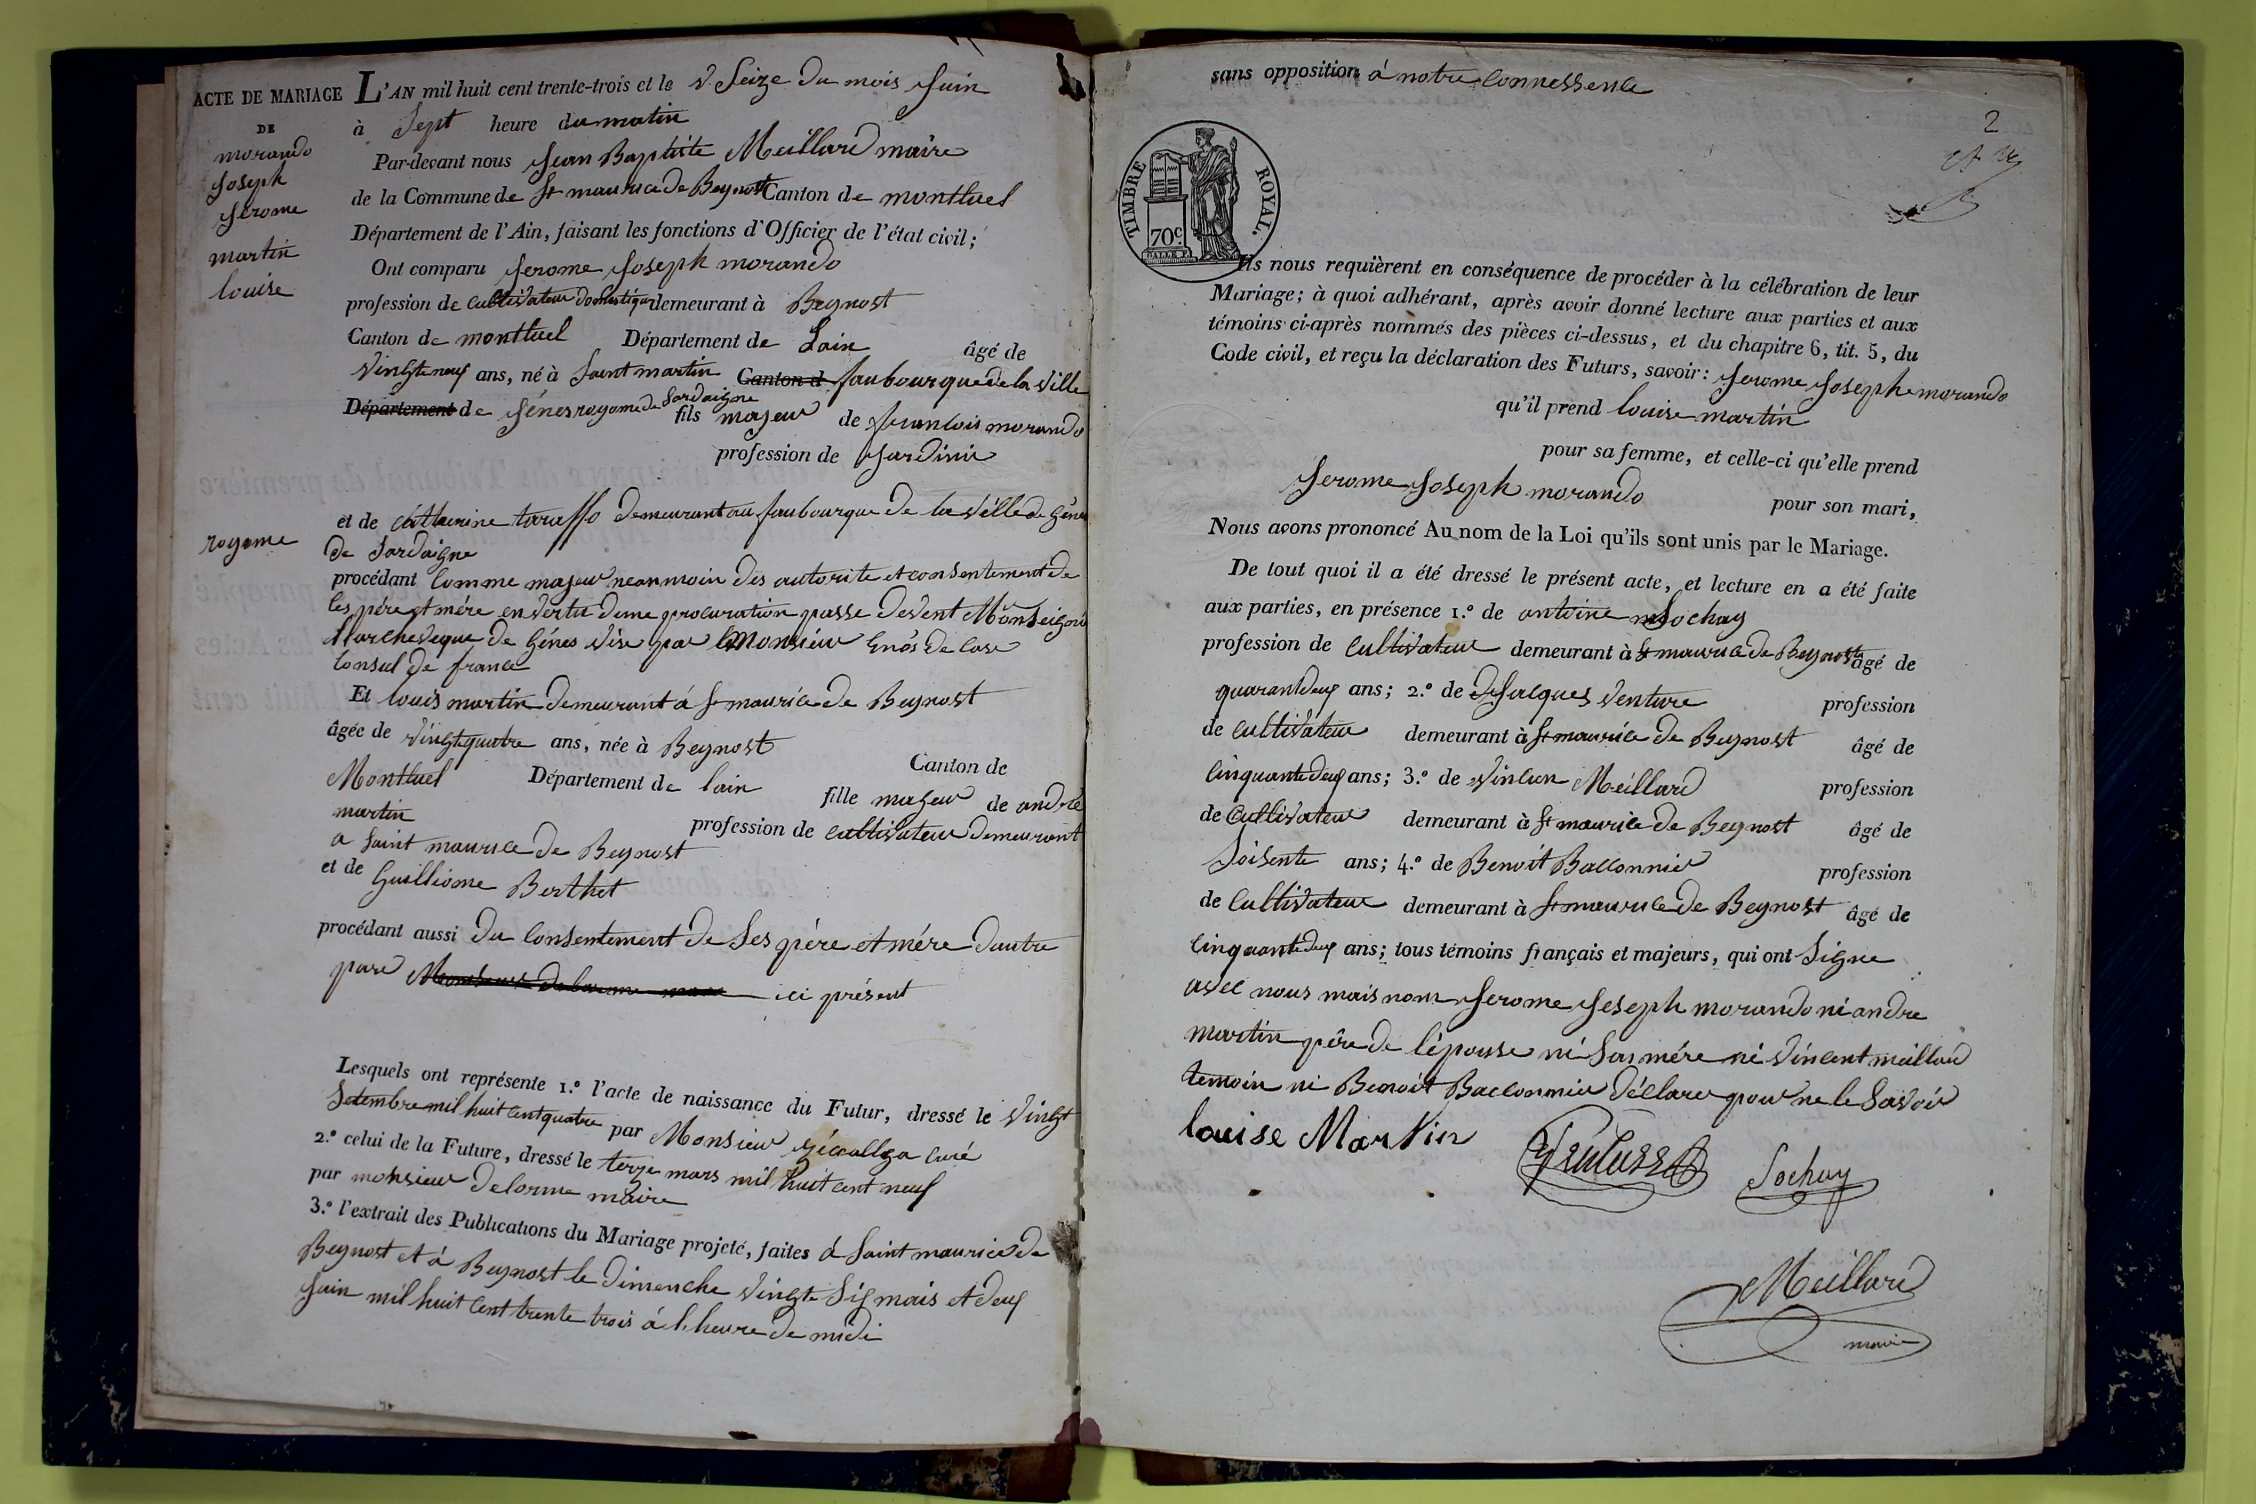 ACTE DE MARIAGE
DE
morando
Joseph
Jerome
martin
louise
L'AN mil huit cent trente-trois et le Seize du mois Juin
à Sept heure du matin
Par-devant nous Jean Baptiste Meillard maire
de la Commune de St maurice de Beynost Canton de montluel
Département de l'Ain, faisant les fonctions d'Officier de l'état civil;
Ont comparu Jerome Joseph morando
profession de cultivateur domestique demeurant à Beynost
Canton de montluel Département de Lain âgé de
vingteneuf ans, né à Saint martin Canton d faubourque de la ville
Département de Génes royome de Sardaigne fils majeur de francois morando
profession de Jardinié
et de Catherine tarasso demeurant au faubourque de la ville de Génes
royome
de Sardaigne
procédant comme majeur neanmoin des autorite et consentement de
ses pére et mére en vertu dune procuration passe devent Monseignieur
larcheveque de Génes vise par Monsieur
Consul de france
Et louis martin demeurant á St maurice de Beynost
âgée de vingtquatre ans, née à Beynost
Canton de
Montluel Département de lain fille majeur de andré
martin profession de cultivateur demeurant
a Saint maurice de Beynost
et de Guilliome Berthet
procédant aussi du consentement de Ses pére et mére dautre
pare ici présent
Lesquels ont représenté 1.º l'acte de naissance du Futur, dressé le vingt
Setembre mil huit cent quatre par Monsieur curé
2.º celui de la Future, dressé le treze mars mil huit cent neuf
par monsieur Delorme maire
3.º l'extrait des Publications du Mariage projeté, faites á Saint maurice de
Beynost et á Beynost le dimenche vingte Six mais et deux
Juin mil huit cent trente trois á l heure de midi
sans opposition á notre connessence
2
TIMBRE ROYAL.
70c.
Ils nous requièrent en conséquence de procéder à la célébration de leur
Mariage; à quoi adhérant, après avoir donné lecture aux parties et aux
témoins ci-après nommés des pièces ci-dessus, et du chapitre 6, tit. 5, du
Code civil, et reçu la déclaration des Futurs, savoir: Jerome Joseph morando
qu'il prend louise martin
pour sa femme, et celle-ci qu'elle prend
Jerome Joseph morando pour son mari,
Nous avons prononcé Au nom de la Loi qu'ils sont unis par le Mariage.
De tout quoi il a été dressé le présent acte, et lecture en a été faite
aux parties, en présence 1.º de antoine Sochay
profession de cultivateur demeurant à St maurice de Beynost âgé de
quarantdeux ans; 2.º de Jacques venture profession
de cultivateur demeurant à St maurice de Beynost âgé de
cinquantedeux ans; 3.º de vincen Meillard profession
de Cultivateur demeurant à St maurice de Beynost âgé de
Soisente ans; 4.º de Benoit Baconnier profession
de cultivateur demeurant à St maurice de Beynost âgé de
cinquantedeux ans; tous témoins français et majeurs, qui ont Signe
avec nous mais nom Jerome Joseph morando ni andre
martin pére de lépouse ni Sas mére ni vincent meillard
temoin ni Benoit Baconnier déclare pour ne le Savoir
louise Martin
Sochay
Meillard
maire